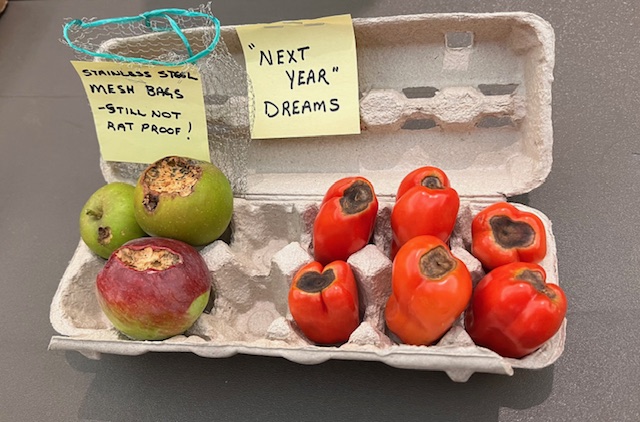 STAINLESS STEEL
MESH BAGS
-STILL NOT
RAT PROOF!
"NEXT
YEAR"
DREAMS